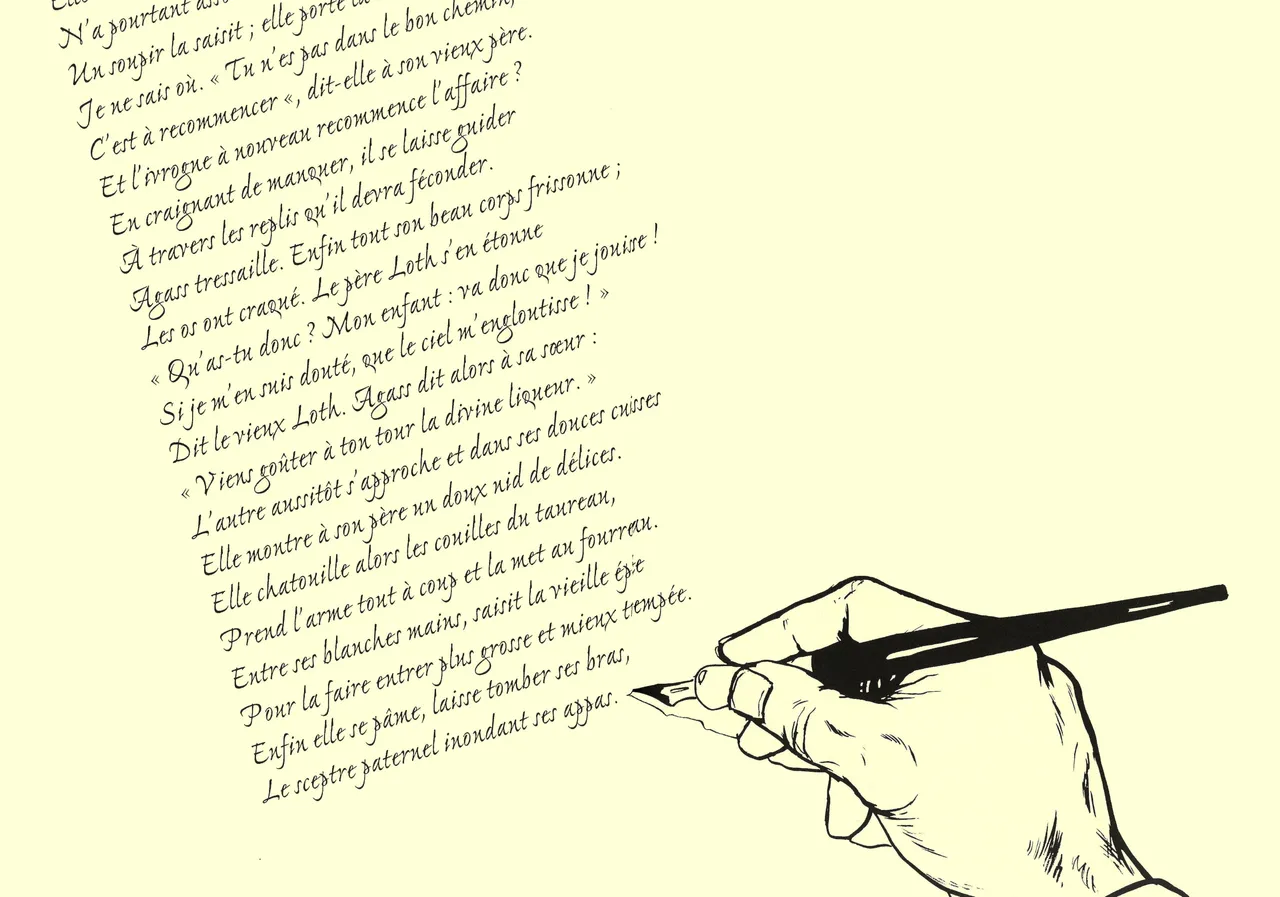 N'a pourtant
Un soupir la saisit ; elle porte la
Je ne sais où. « Tu n'es pas dans le bon chemin,
C'est à recommencer «, dit-elle à son vieux père.
Et l'ivrogne à nouveau recommence l'affaire ?
En craignant de manquer, il se laisse guider
À travers les replis qu'il devra féconder.
Agass tressaille. Enfin tout son beau corps frissonne ;
Les os ont craqué. Le père Loth s'en étonne
« Qu'as-tu donc ? Mon enfant : va donc que je jouisse !
Si je m'en suis douté, que le ciel m'engloutisse ! »
Dit le vieux Loth. Agass dit alors à sa sœur :
« Viens goûter à ton tour la divine liqueur. »
L'autre aussitôt s'approche et dans ses douces cuisses
Elle montre à son père un doux nid de délices.
Elle chatouille alors les couilles du taureau,
Prend l'arme tout à coup et la met au fourreau.
Entre ses blanches mains, saisit la vieille épée
Pour la faire entrer plus grosse et mieux trempée.
Enfin elle se pâme, laisse tomber ses bras,
Le sceptre paternel inondant ses appas.